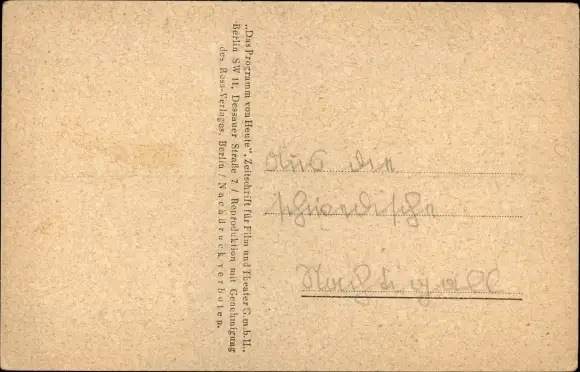 „Das Programm von Heute“, Zeitschrift für Film und Theater G.m.b.H.,
Berlin SW 11, Dessauer Straße 7 / Reproduktion mit Genehmigung
des Ross-Verlages, Berlin / Nachdruck verboten.
Aus die
schwedische
Nachtigall